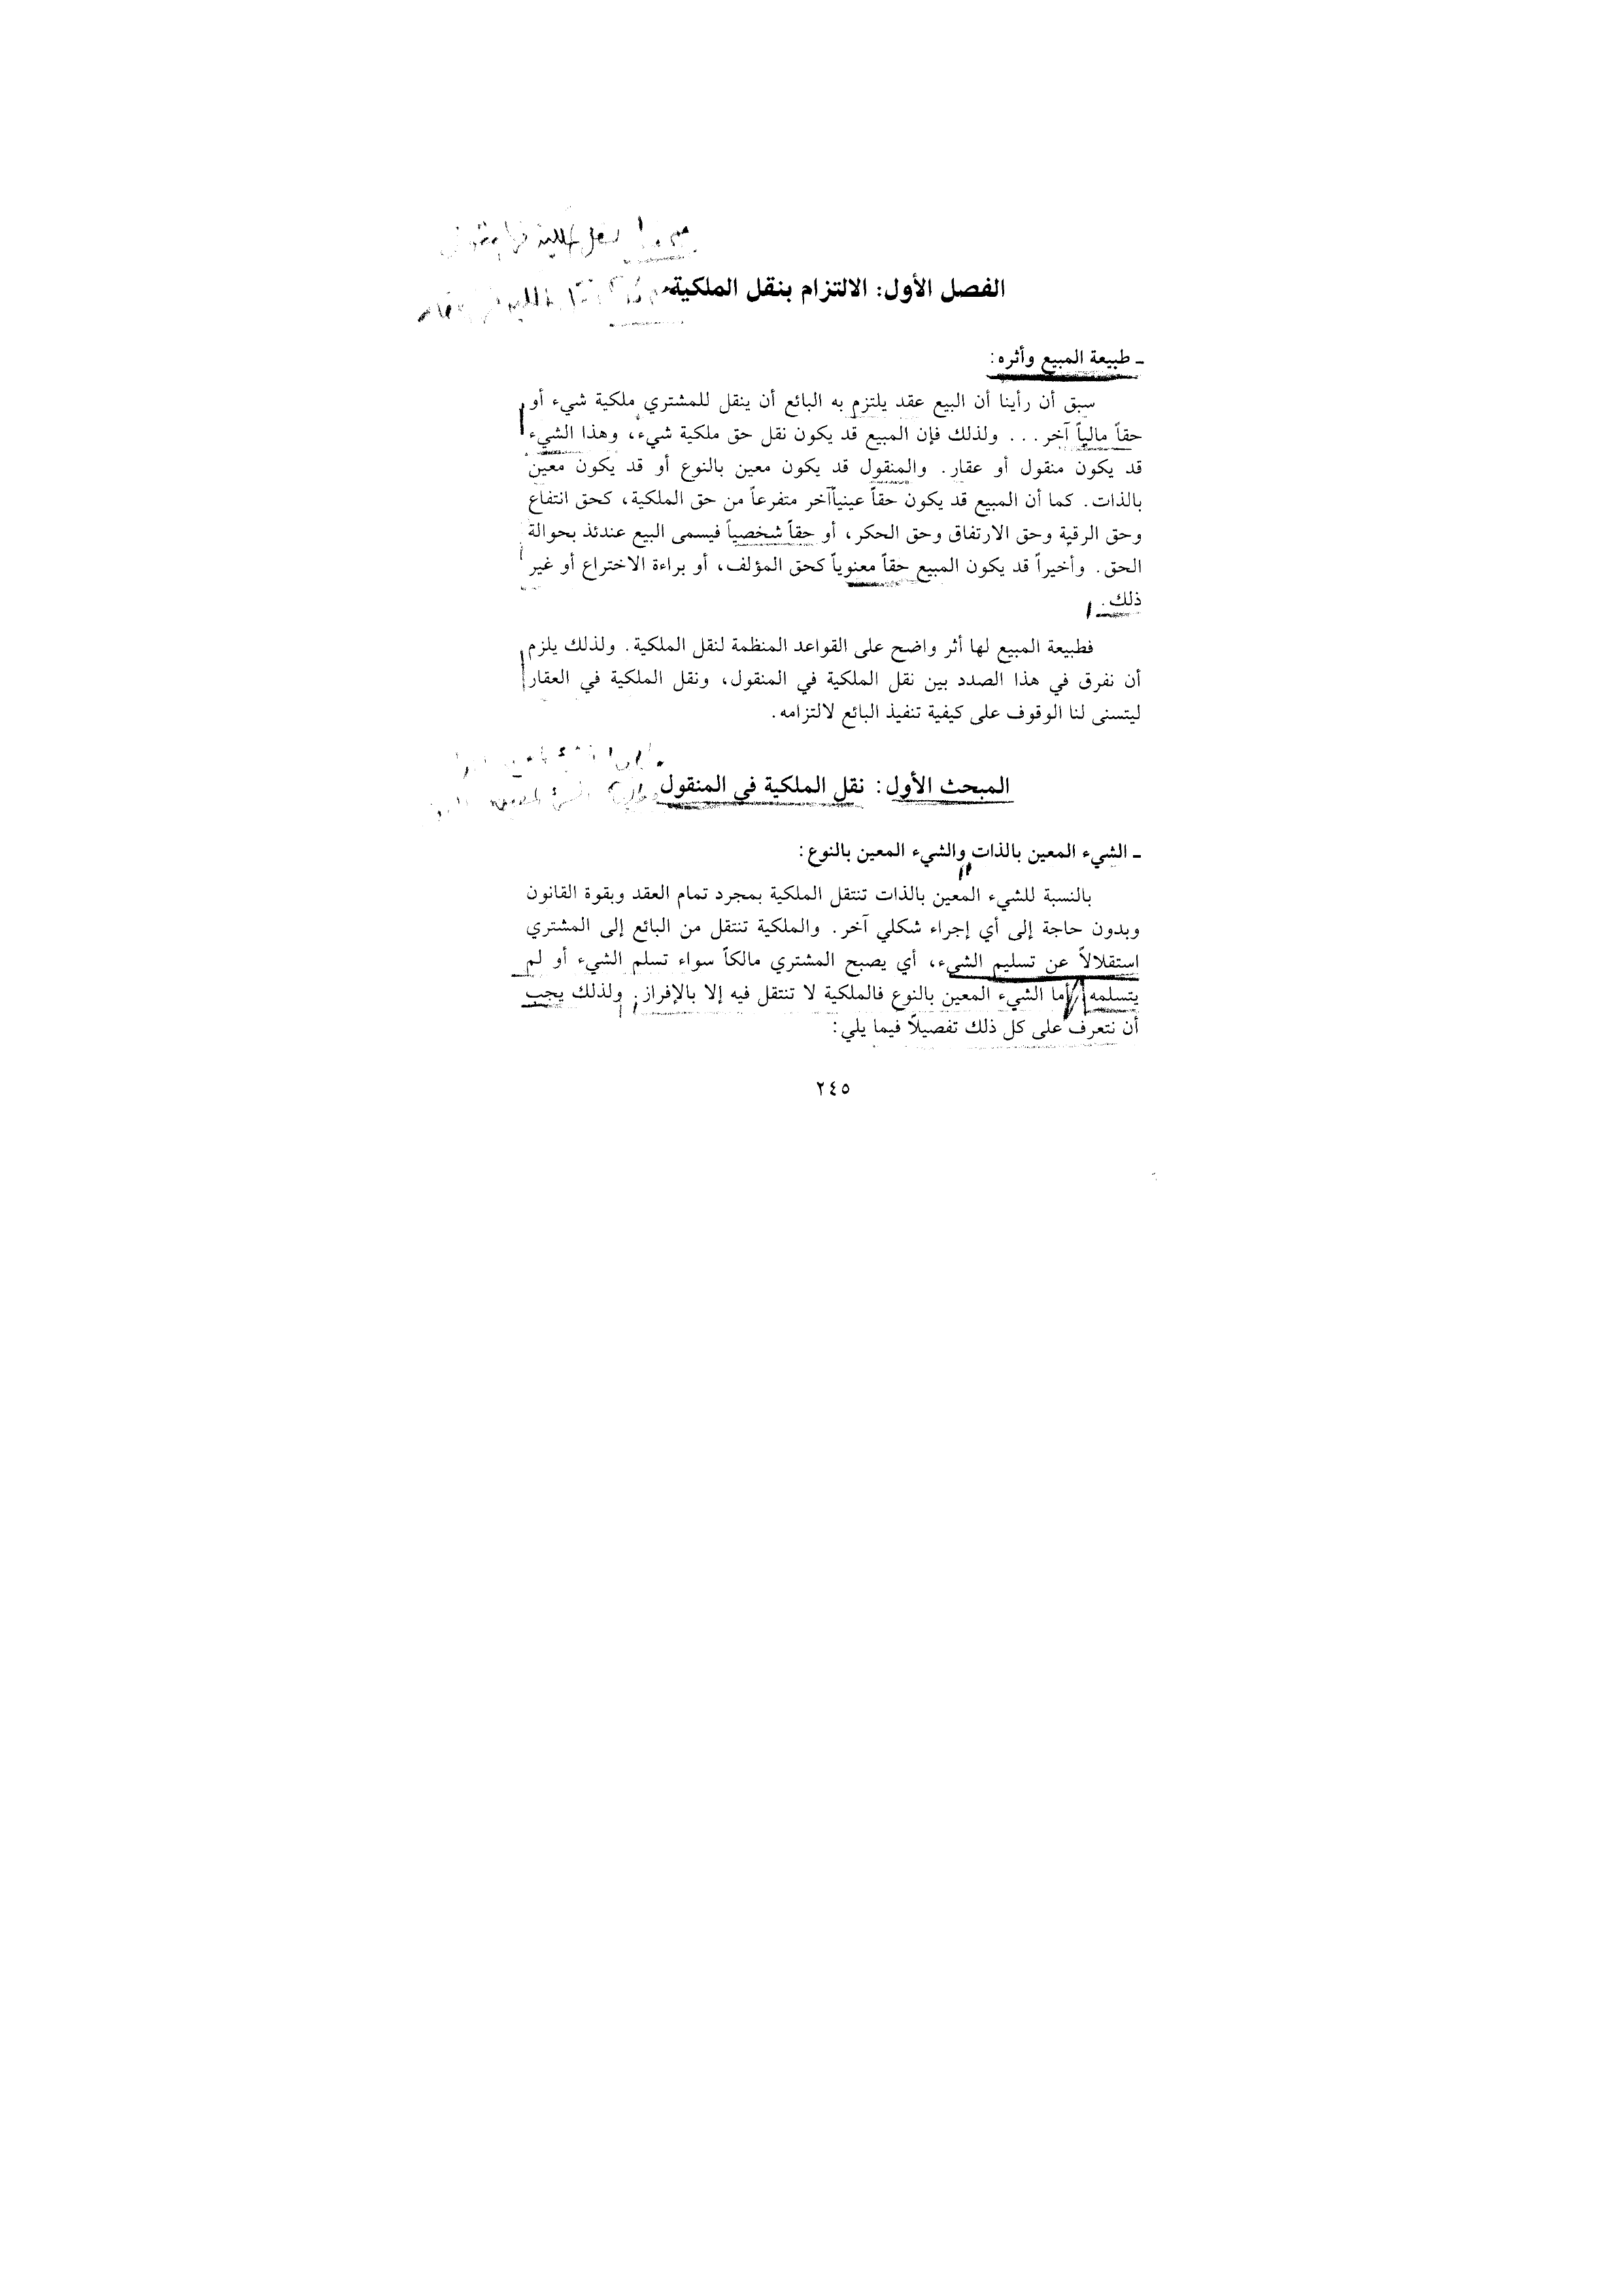 الفصل الأول: الالتزام بنقل الملكية
ـ طبيعة المبيع وأثره:
سبق أن رأينا أن البيع عقد يلتزم به البائع أن ينقل للمشتري ملكية شيء أو
حقاً مالياً آخر... ولذلك فإن المبيع قد يكون نقل حق ملكية شيء، وهذا الشيء
قد يكون منقول أو عقار. والمنقول قد يكون معين بالنوع أو قد يكون معين
بالذات. كما أن المبيع قد يكون حقاً عينياً آخر متفرعاً من حق الملكية، كحق انتفاع
وحق الرقية وحق الارتفاق وحق الحكر، أو حقاً شخصياً فيسمى البيع عندئذ بحوالة
الحق. وأخيراً قد يكون المبيع حقاً معنوياً كحق المؤلف، أو براءة الاختراع أو غير
ذلك.
فطبيعة المبيع لها أثر واضح على القواعد المنظمة لنقل الملكية. ولذلك يلزم
أن نفرق في هذا الصدد بين نقل الملكية في المنقول، ونقل الملكية في العقار
ليتسنى لنا الوقوف على كيفية تنفيذ البائع لالتزامه.
المبحث الأول: نقل الملكية في المنقول
ـ الشيء المعين بالذات والشيء المعين بالنوع:
بالنسبة للشيء المعين بالذات تنتقل الملكية بمجرد تمام العقد وبقوة القانون
وبدون حاجة إلى أي إجراء شكلي آخر. والملكية تنتقل من البائع إلى المشتري
استقلالاً عن تسليم الشيء، أي يصبح المشتري مالكاً سواء تسلم الشيء أو لم
يتسلمه أما الشيء المعين بالنوع فالملكية لا تنتقل فيه إلا بالإفراز. ولذلك يجب
أن نتعرف على كل ذلك تفصيلاً فيما يلي:
٢٤٥